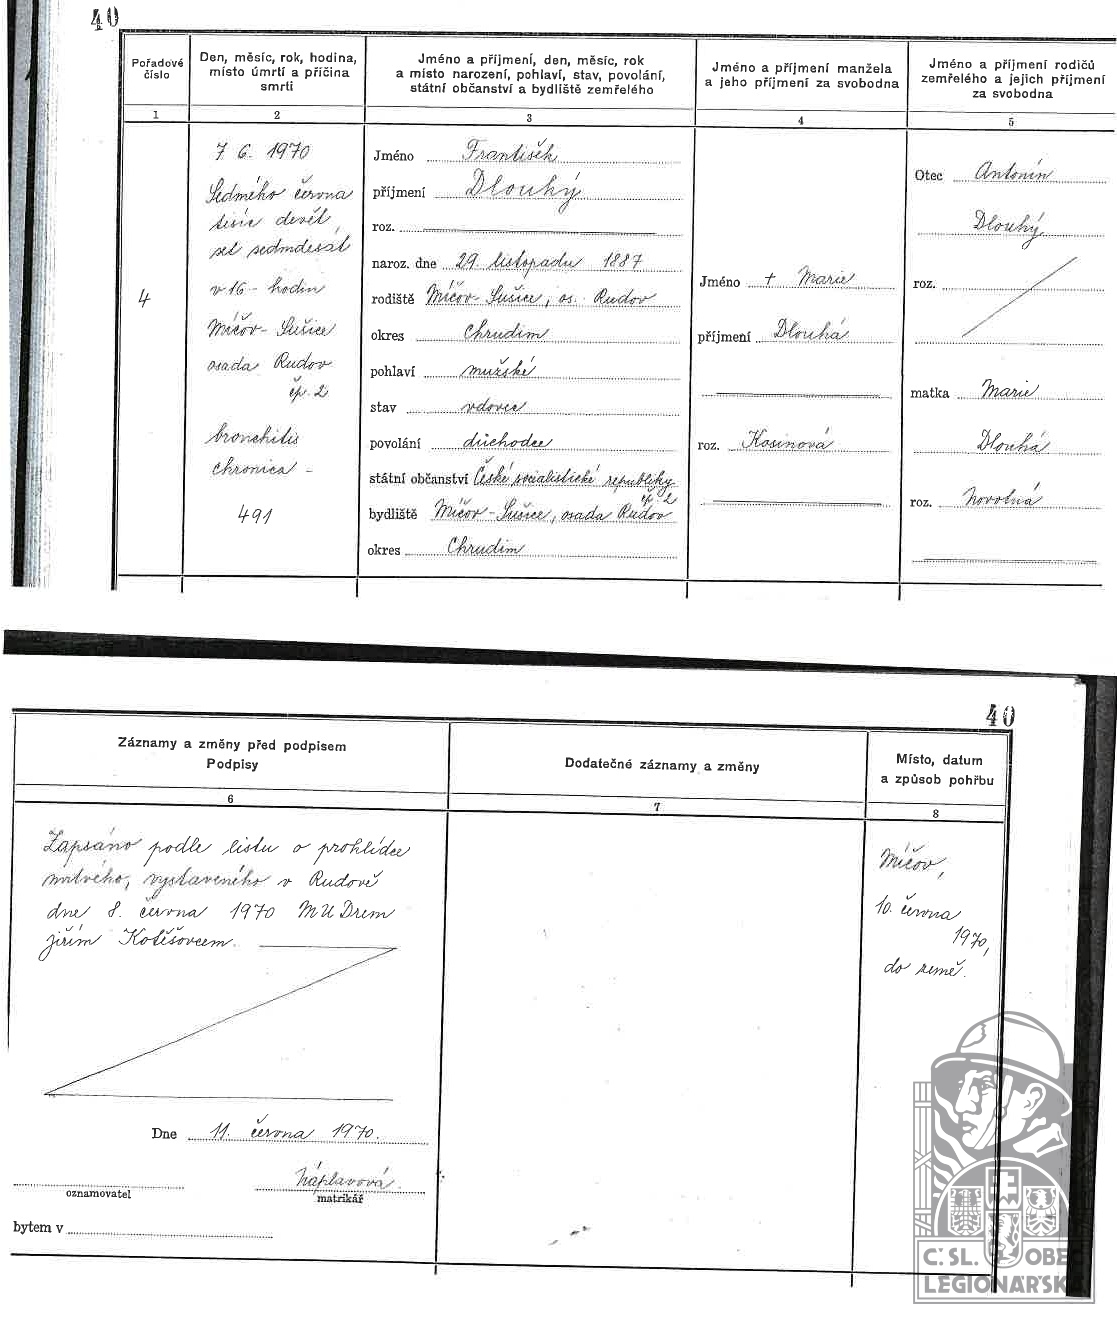 40
Pořadové číslo
Den, měsíc, rok, hodina, místo úmrtí a příčina smrti
Jméno a příjmení, den, měsíc, rok a místo narození, pohlaví, stav, povolání, státní občanství a bydliště zemřelého
Jméno a příjmení manžela a jeho příjmení za svobodna
Jméno a příjmení rodičů zemřelého a jejich příjmení za svobodna
1
2
3
4
5
4
7. 6. 1970
Sedmého června
tisíc devět
set sedmdesát
v 16 - hodin
Míčov - Sušice
osada Rudov
čp. 2
bronchitis
chronica -
491
Jméno František
příjmení Dlouhý
roz.
naroz. dne 29. listopadu 1887
rodiště Míčov - Sušice, os. Rudov
okres Chrudim
pohlaví mužské
stav vdovec
povolání důchodce
státní občanství České socialistické republiky
čp 2
bydliště Míčov - Sušice, osada Rudov
okres Chrudim
Jméno + Marie
příjmení Dlouhá
roz. Kasinová
Otec Antonín
Dlouhý
roz.
matka Marie
Dlouhá
roz. Novotná
40
Záznamy a změny před podpisem
Podpisy
Dodatečné záznamy a změny
Místo, datum
a způsob pohřbu
6
7
8
Zapsáno podle listu o prohlídce
mrtvého, vystaveného v Rudově
dne 8. června 1970 MUDrem
Jiřím Kotěšovcem.
Dne 11. června 1970.
Náplavová.
oznamovatel
matrikář
bytem v
Míčov,
10. června
1970,
do země.
Č. SL. OBEC
LEGIONÁŘSKÁ